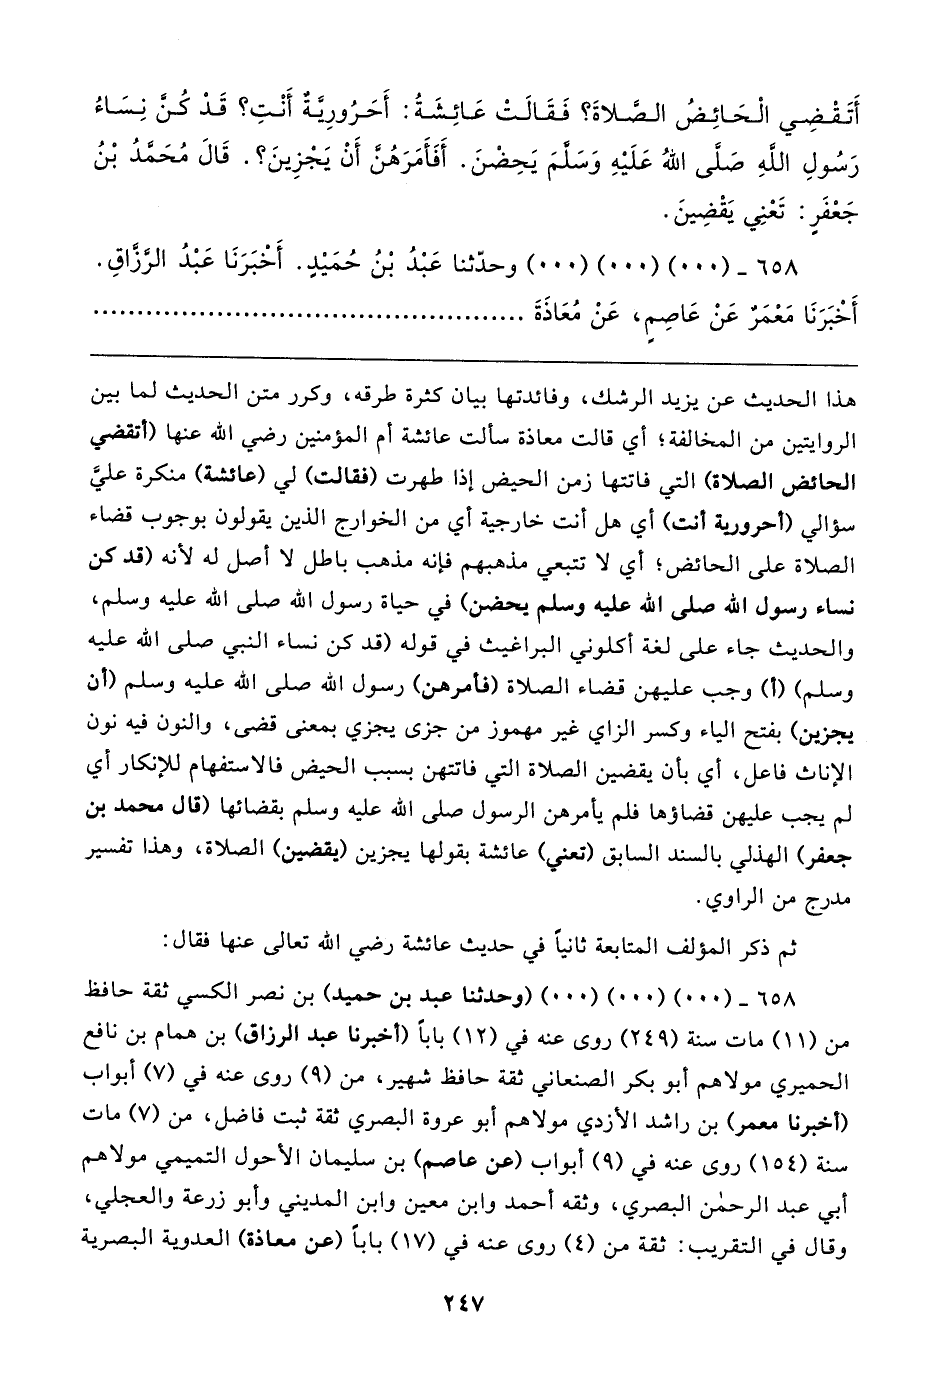 أَتَقْضِي الْحَائِضُ الصَّلَاةَ؟ فَقَالَتْ عَائِشَةُ: أَحَرُورِيَّةٌ أَنْتِ؟ قَدْ كُنَّ نِسَاءُ
رَسُولِ اللَّهِ صَلَّى اللهُ عَلَيْهِ وَسَلَّمَ يَحِضْنَ. أَفَأَمَرَهُنَّ أَنْ يَجْزِينَ؟. قَالَ مُحَمَّدُ بْنُ
جَعْفَرٍ: تَعْنِي يَقْضِينَ.
٦٥٨ ـ (٠٠٠) (٠٠٠) (٠٠٠) وحدّثنا عَبْدُ بْنُ حُمَيْدٍ. أَخْبَرَنَا عَبْدُ الرَّزَّاقِ.
أَخْبَرَنَا مَعْمَرٌ عَنْ عَاصِمٍ، عَنْ مُعَاذَةَ ................................................
هذا الحديث عن يزيد الرشك، وفائدتها بيان كثرة طرقه، وكرر متن الحديث لما بين
الروايتين من المخالفة؛ أي قالت معاذة سألت عائشة أم المؤمنين رضي الله عنها (أتقضي
الحائض الصلاة) التي فاتتها زمن الحيض إذا طهرت (فقالت) لي (عائشة) منكرة عليَّ
سؤالي (أحرورية أنت) أي هل أنت خارجية أي من الخوارج الذين يقولون بوجوب قضاء
الصلاة على الحائض؛ أي لا تتبعي مذهبهم فإنه مذهب باطل لا أصل له لأنه (قد كن
نساء رسول الله صلى الله عليه وسلم يحضن) في حياة رسول الله صلى الله عليه وسلم،
والحديث جاء على لغة أكلوني البراغيث في قوله (قد كن نساء النبي صلى الله عليه
وسلم) (أ) وجب عليهن قضاء الصلاة (فأمرهن) رسول الله صلى الله عليه وسلم (أن
يجزين) بفتح الياء وكسر الزاي غير مهموز من جزى يجزي بمعنى قضى، والنون فيه نون
الإناث فاعل، أي بأن يقضين الصلاة التي فاتتهن بسبب الحيض فالاستفهام للإنكار أي
لم يجب عليهن قضاؤها فلم يأمرهن الرسول صلى الله عليه وسلم بقضائها (قال محمد بن
جعفر) الهذلي بالسند السابق (تعني) عائشة بقولها يجزين (يقضين) الصلاة، وهذا تفسير
مدرج من الراوي.
ثم ذكر المؤلف المتابعة ثانياً في حديث عائشة رضي الله تعالى عنها فقال:
٦٥٨ ـ (٠٠٠) (٠٠٠) (٠٠٠) (وحدثنا عبد بن حميد) بن نصر الكسي ثقة حافظ
من (١١) مات سنة (٢٤٩) روى عنه في (١٢) باباً (أخبرنا عبد الرزاق) بن همام بن نافع
الحميري مولاهم أبو بكر الصنعاني ثقة حافظ شهير، من (٩) روى عنه في (٧) أبواب
(أخبرنا معمر) بن راشد الأزدي مولاهم أبو عروة البصري ثقة ثبت فاضل، من (٧) مات
سنة (١٥٤) روى عنه في (٩) أبواب (عن عاصم) بن سليمان الأحول التميمي مولاهم
أبي عبد الرحمٰن البصري، وثقه أحمد وابن معين وابن المديني وأبو زرعة والعجلي،
وقال في التقريب: ثقة من (٤) روى عنه في (١٧) باباً (عن معاذة) العدوية البصرية
٢٤٧